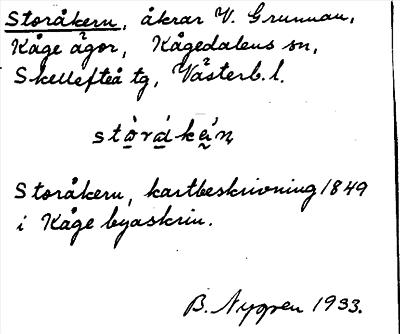 Storåkern, åkrar V. Grunnan,
Kåge ägor, Kågedalens sn,
Skellefteå tg, Västerb. l.
Storåkern, kartbeskrivning 1849
i Kåge byaskrin.
B. Nygren 1933.